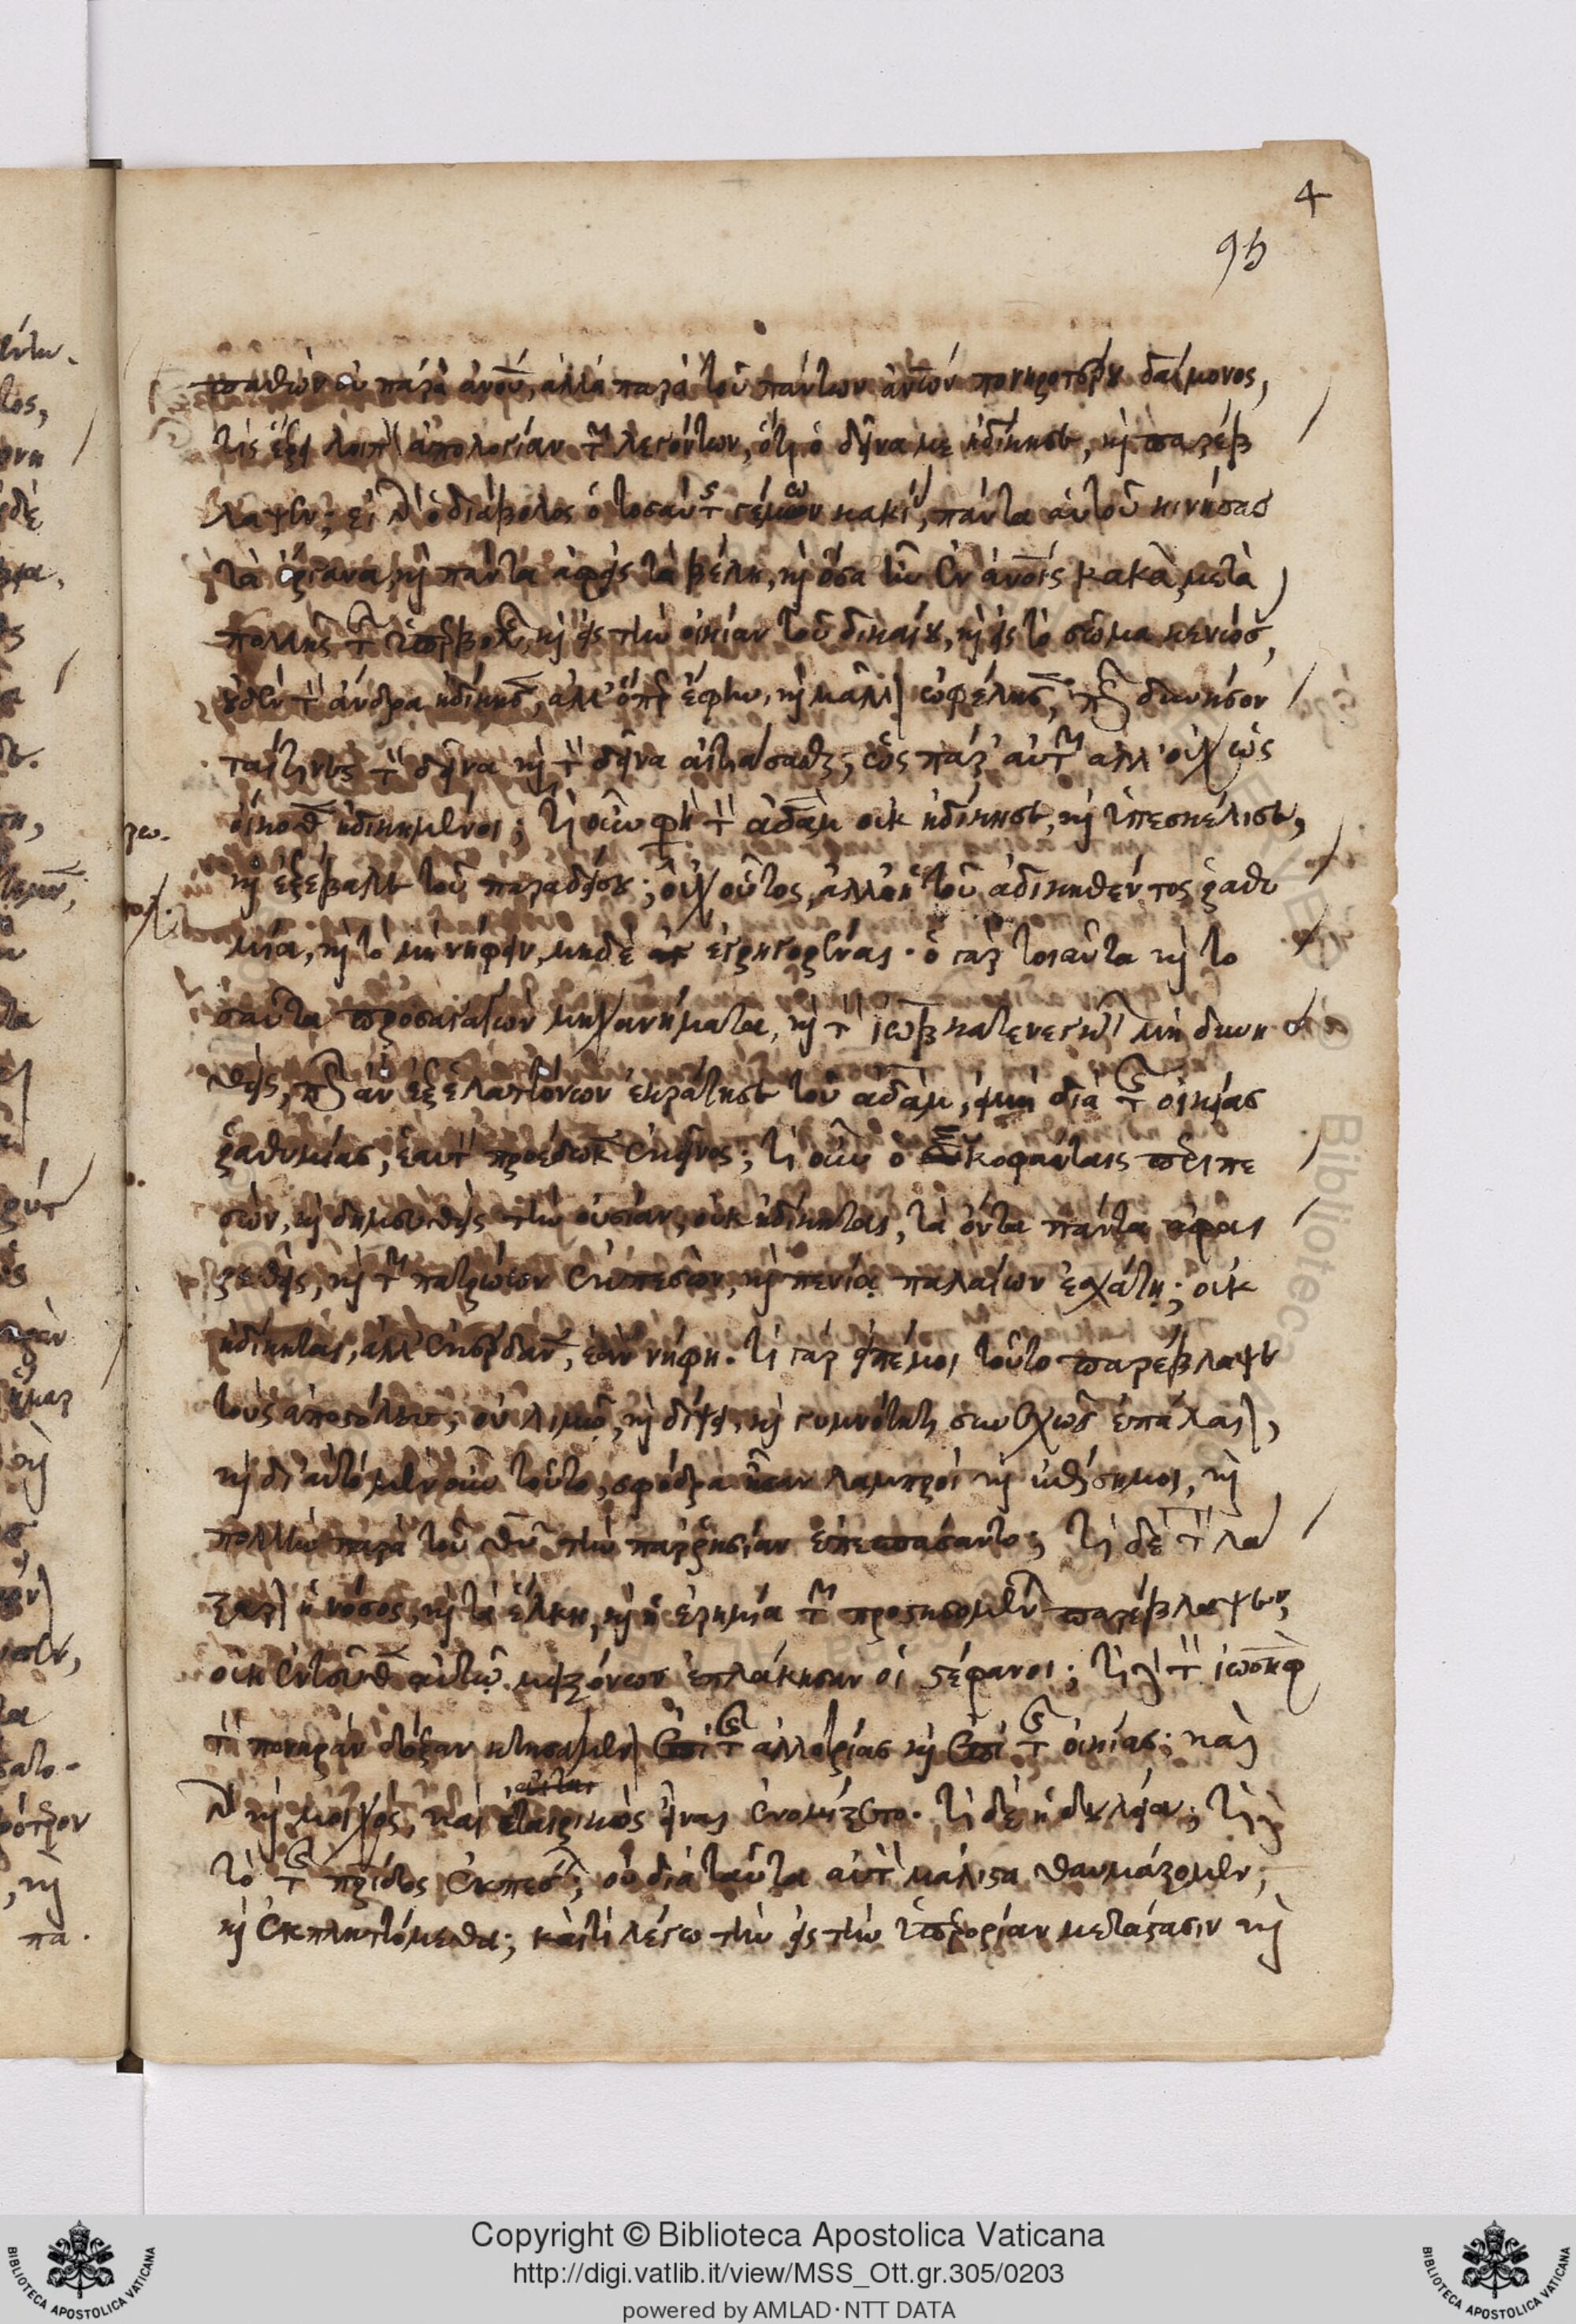 4
95
παθὼν οὐ παρὰ ἀνοῦ, ἀλλὰ παρὰ τοῦ πάντων ἀνων πονηροτέρου δαίμονος,
τίς ἕξει λοιπ ἀπολογίαν τ λεγόντων, ὅτι ὁ δεῖνα με ἠδίκησε, κὶ παρέβ
λαψεν; εἰ γὰρ ὁ διάβολος ὁ τοσαύτ γέμων κακί, πάντα αὐτοῦ κινήσας
τὰ ὄργανα, κὶ πάντα ἀφεὶς τὰ βέλη, κὶ ὅσα ἦν ἐν ἀνοις κακὰ, μετὰ
πολλῆς τ ὑπερβολ, κὶ εἰς τὴν οἰκίαν τοῦ δικαίου, κὶ εἰς τὸ σῶμα κενώσ,
οὐδὲν τ ἄνδρα ἠδίκησ, ἀλλ' ὅπερ ἔφην, κὶ μᾶλλ ὠφέλησ, πῶς δυνήσον
ται τινὲς τ δεῖνα κὶ τ δεῖνα αἰτιάσασθαι, ὡς παρ' αὐτ ἀλλ' οὐχ ὡς
οἴκοθ ἠδικημένοι; τί οὖν φη τ ἀδὰμ οὐκ ἠδίκησε, κὶ ὑπεσκέλισε,
κὶ ἐξέβαλε τοῦ παραδείσου; οὐχ οὗτος, ἀλλ' ἡ τοῦ ἀδικηθέντος ῥαθυ
μία, κὶ τὸ μὴ νήφειν, μηδὲ ἐγρηγορέναι. ὁ γὰρ τοιαῦτα κὶ το
σαῦτα προσαγαγὼν μηχανήματα, κὶ τ ἰὼβ κατενεγκεῖν μὴ δυνη
θεὶς, πῶς ἂν ἐξ ἐλαττόνων ἐκράτησε τοῦ ἀδὰμ, εἰ μὴ διὰ τ οἰκείας
ῥαθυμίας, ἑαυτ προέδωκ ἐκεῖνος; τί οὖν ὁ συκοφάνταις περιπε
σὼν, κὶ δημευθεὶς τὴν οὐσίαν, οὐκ ἠδίκηται, τὰ ὄντα πάντα ἀφαι
ρεθεὶς, κὶ τ πατρώων ἐκπεσὼν, κὶ πενίᾳ παλαίων ἐσχάτῃ; οὐκ
ἠδίκηται, ἀλλ' ἐκέρδαν, ἐὰν νήφῃ. τί γὰρ εἰπέ μοι τοῦτο παρέβλαψε
τοὺς ἀποστόλους; οὐ λιμῷ, κὶ δίψῃ, κὶ γυμνότητι συνεχῶς ἐπάλαι,
κὶ δι' αὐτὸ μὲν οὖν τοῦτο, σφόδρα ἦσαν λαμπροὶ κὶ ἐπίσημοι, κὶ
πολλὴν παρὰ τοῦ θυ τὴν παρρησίαν ἐπεσπάσαντο; τί δὲ τ λά
ζαρ ἡ νόσος, κὶ τὰ ἕλκη, κὶ ἡ ἐρημία τ προστησομέν παρέβλαψεν,
οὐκ ἐντεῦθ αὐτῷ μειζόνων ἐπλάκησαν οἱ στέφανοι; τί δὲ τ ἰωσὴφ
τ πονηρὰν δόξαν κτησάμεν ἐπὶ τ ἀλλοτρίας κὶ ἐπὶ τ οἰκείας; καὶ
γὰρ κὶ μοιχὸς, καὶ ἑταιρικὸς εἶναι ἐνομίζετο. τί δὲ ἡ δουλεία; τί δὲ
τὸ τ πρίδος ἐκπεσεῖν; οὐ διὰ ταῦτα αὐτ μάλιστα θαυμάζομεν,
κὶ ἐκπληττόμεθα; καὶ τί λέγω τὴν εἰς τὴν ὑπερορίαν μετάστασιν κὶ
Copyright © Biblioteca Apostolica Vaticana
http://digi.vatlib.it/view/MSS_Ott.gr.305/0203
powered by AMLAD·NTT DATA
BIBLIOTECA APOSTOLICA VATICANA
BIBLIOTECA APOSTOLICA VATICANA